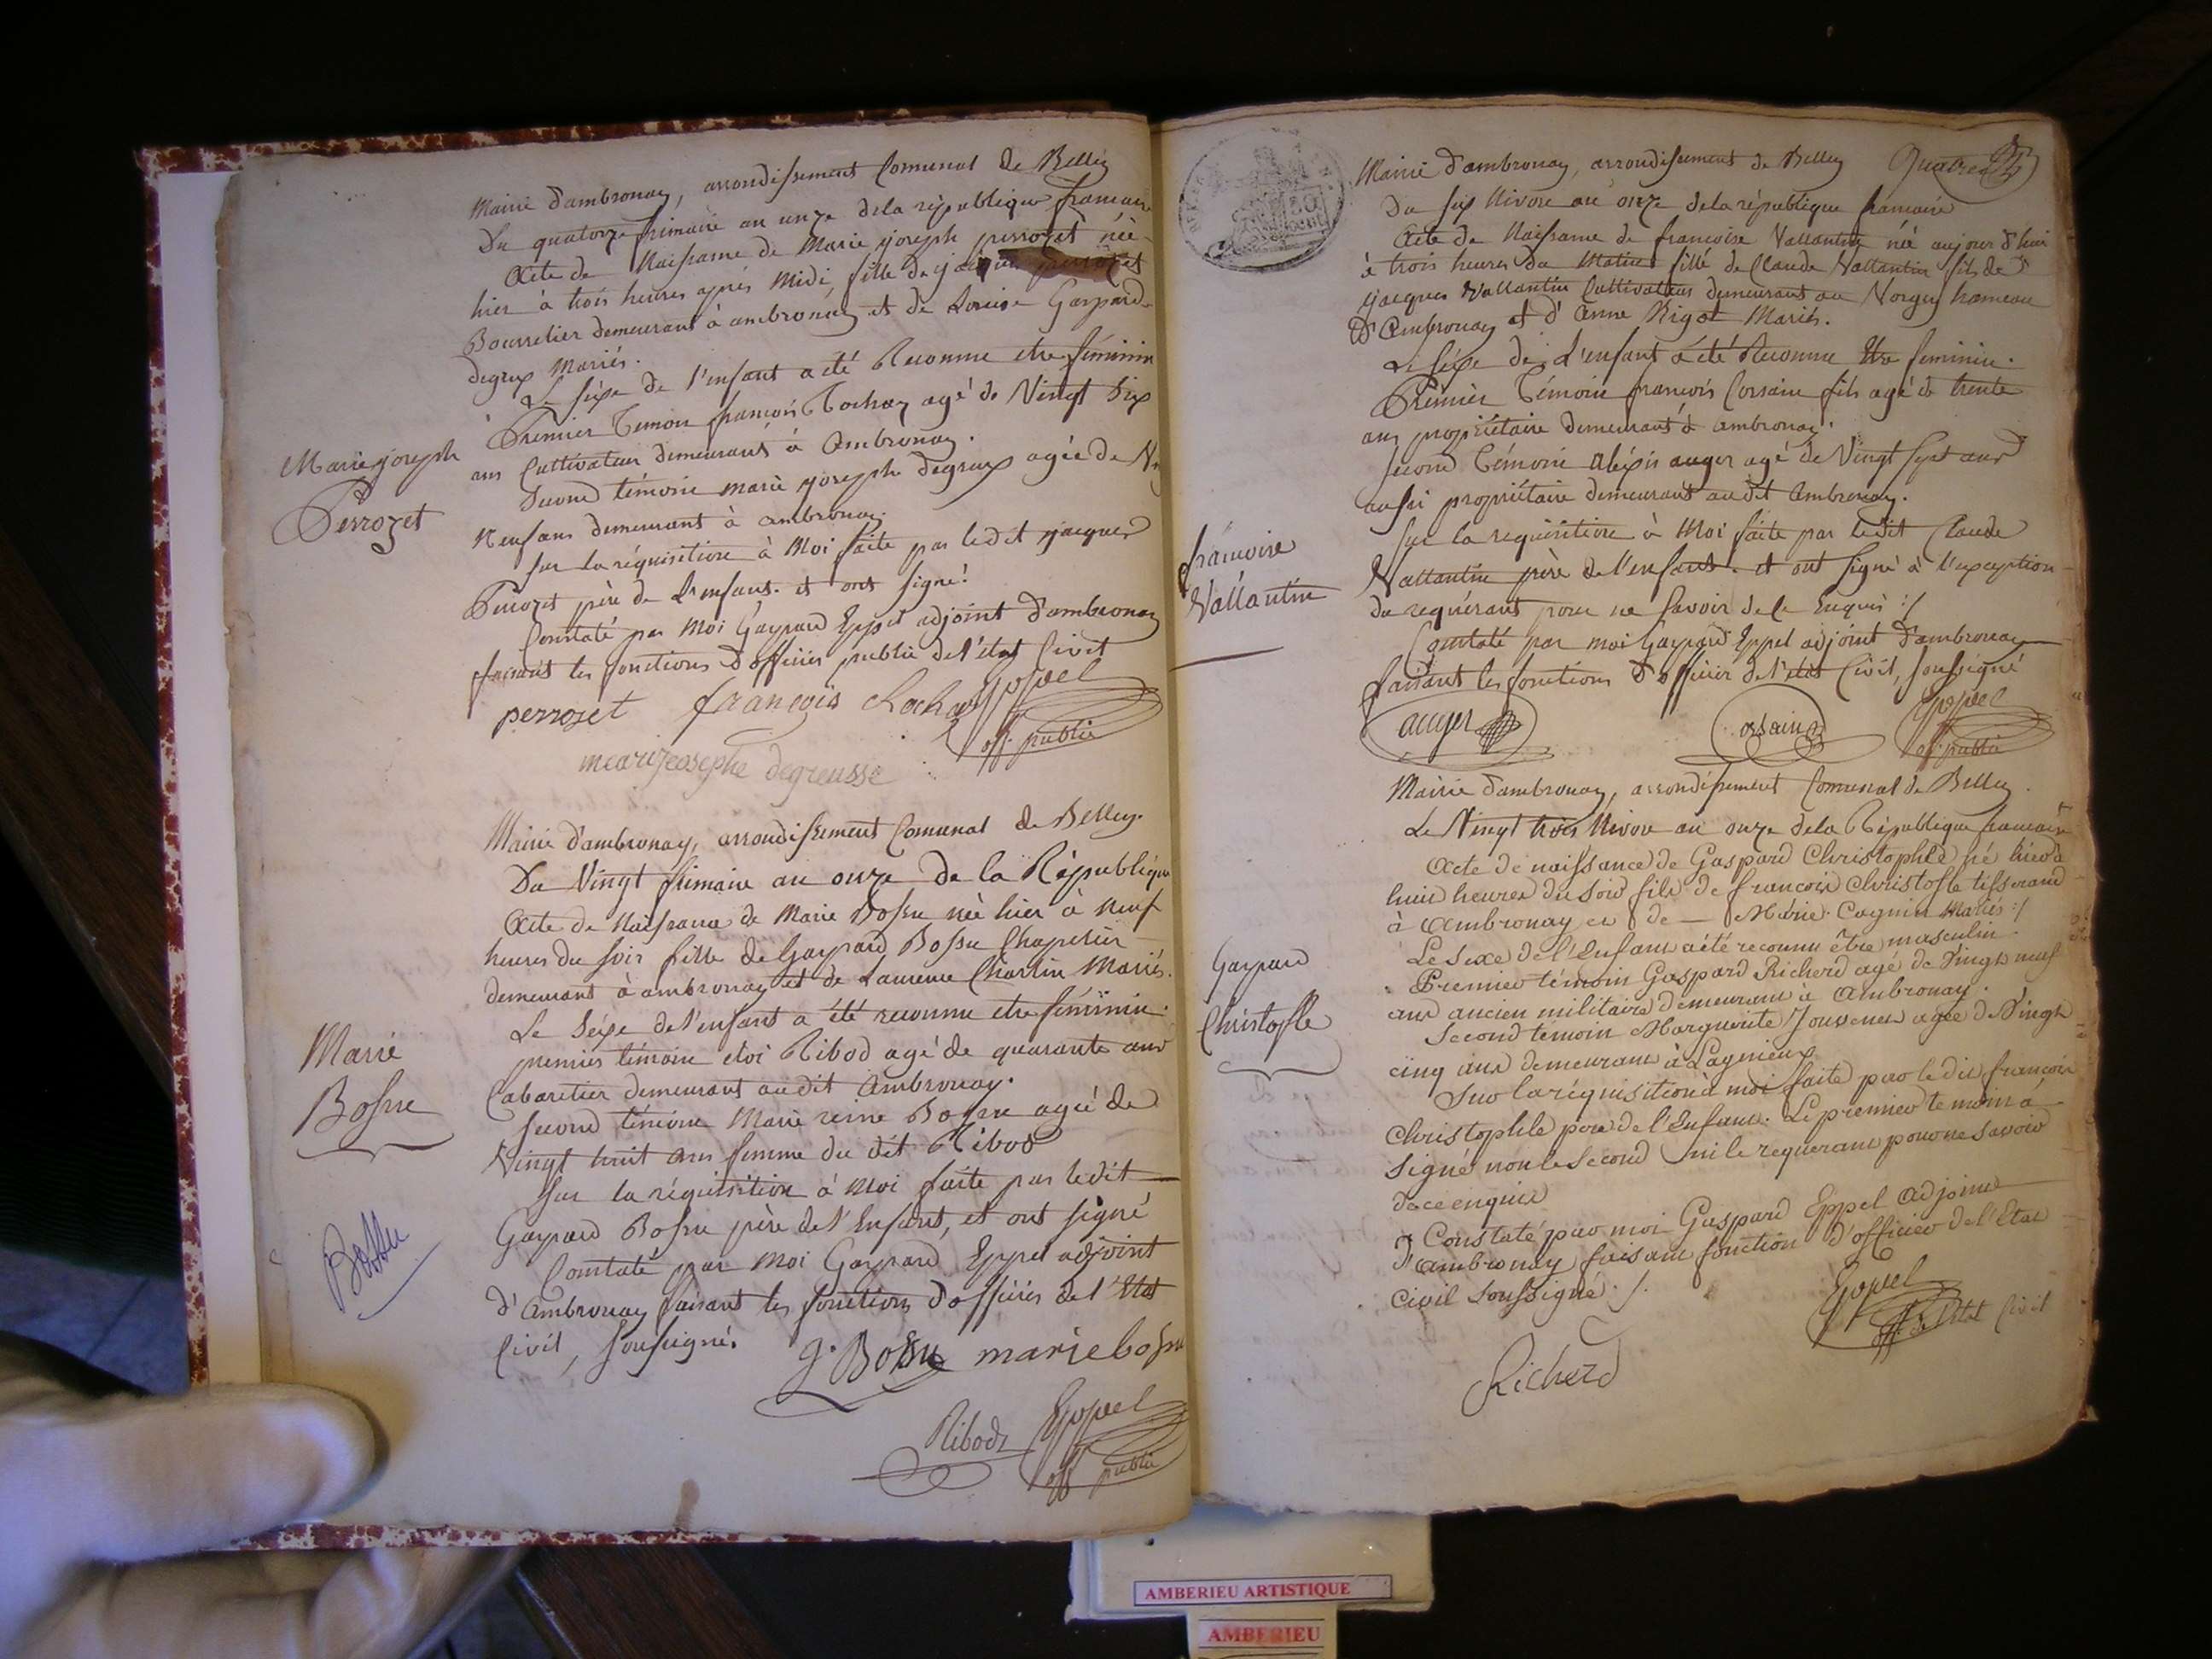 Mairie d'ambronay, arrondissement Comunal de Belley
Du quatorze frimaire an onze dela république francaise
Acte de Naissance de Marie joseph perrozet née
hier à trois heures après Midi, fille de jacques perrozet
Bourrelier demeurant à ambronay et de Louise Gaspard
degrux Mariés.
Le séxe de l'enfant a été Reconnu etre féminin
Premier Temoin francois Rochaz agé de Vingt Six
ans Cultivateur demeurant à Ambronay.
Second témoin marie joseph degrux agée de
Neuf ans demeurant à ambronay.
Sur la réquisition à Moi faite par ledit jacques
Perrozet père de L'enfant. et ont signé!
Constaté par Moi Gaspard Eppel adjoint d'ambronay
faisant les fonctions d'officier public de l'état Civil
perrozet françois Eppel
off. public
marijeosephe degreusse
Marie joseph
Perrozet
Mairie d'ambronay, arrondissement Comunal de Belley.
Du Vingt frimaire an onze de la République
Acte de Naissance de Marie Bossu née hier à Neuf
heures du soir fille de Gaspard Bossu Chapelier
demeurant à ambronay et de Laurence Charlin Mariés.
Le Séxe de l'enfant a été reconnu etre féminin.
premier témoin eloi Ribod agé de quarante ans
Cabaretier demeurant audit Ambronay.
Second témoin Marie reine Bossu agée de
Vingt huit ans femme du dit Ribod
Sur la réquisition à Moi faite par ledit
Gaspard Bossu père de l'Enfant, et ont signé
Constaté par Moi Gaspard Eppel adjoint
d'Ambronay faisant les fonctions d'officier de l'Etat
Civil, soussigné.
g. Bossu marie bossu
Ribod Eppel
off public
Marie
Bossu
Bossu
Mairie d'ambronay, arrondissement de Belley
Du six Nivose an onze dela république francaise
Acte de Naissance de francoise Vallantin née aujourd'hui
à trois heures du Matin fille de Claude Vallantin fils de
jacques Vallantin Cultivateur demeurant au Vorgey hameau
d'Ambronay et d'Anne Rigot Mariés.
Le séxe de L'enfant a été Reconnu Etre feminin.
Premier Témoin francois Corsain fils agé de trente
ans propriétaire demeurant à ambronay.
second Témoin Alexis auger agé de Vingt sept ans
aussi propriétaire demeurant audit Ambronay.
Sur la requisition à Moi faite par ledit Claude
Vallantin père de l'enfant. et ont signé à l'exception
du requérant pour ne savoir de ce Enquis
Constaté par moi Gaspard Eppel adjoint d'ambronay
faisant les fonctions d'officier de l'état Civil, soussigné
auger orsain Eppel
off. public
francoise
Vallantin
Mairie d'ambronay, arrondissement Comunal de Belley.
Le Vingt trois Nivose an onze dela République francaise
Acte de naissance de Gaspard Christophle né hier à
huit heures du soir fils de francois Christofle tisserand
à Ambronay et de Marie Cagnin Mariés
Le sexe de l'Enfant a été reconnu être masculin.
Premier témoin Gaspard Richerd agé de Vingt neuf
ans ancien militaire demeurant à Ambronay.
Second temoin Marguerite agée de Vingt
cinq ans demeurant à Lagnieux
Sur la réquisition à moi faite par ledit francois
Christophle pere de l'Enfant. Le premier temoin a
signé non le second ni le requerant pour ne savoir
de ce enquis
Constaté par moi Gaspard Eppel Adjoint
d'ambronay faisant fonction d'officier de l'Etat
civil soussigné
Eppel
off. de l'Etat Civil
Richerd
Gaspard
Christofle
AMBERIEU ARTISTIQUE
AMBERIEU